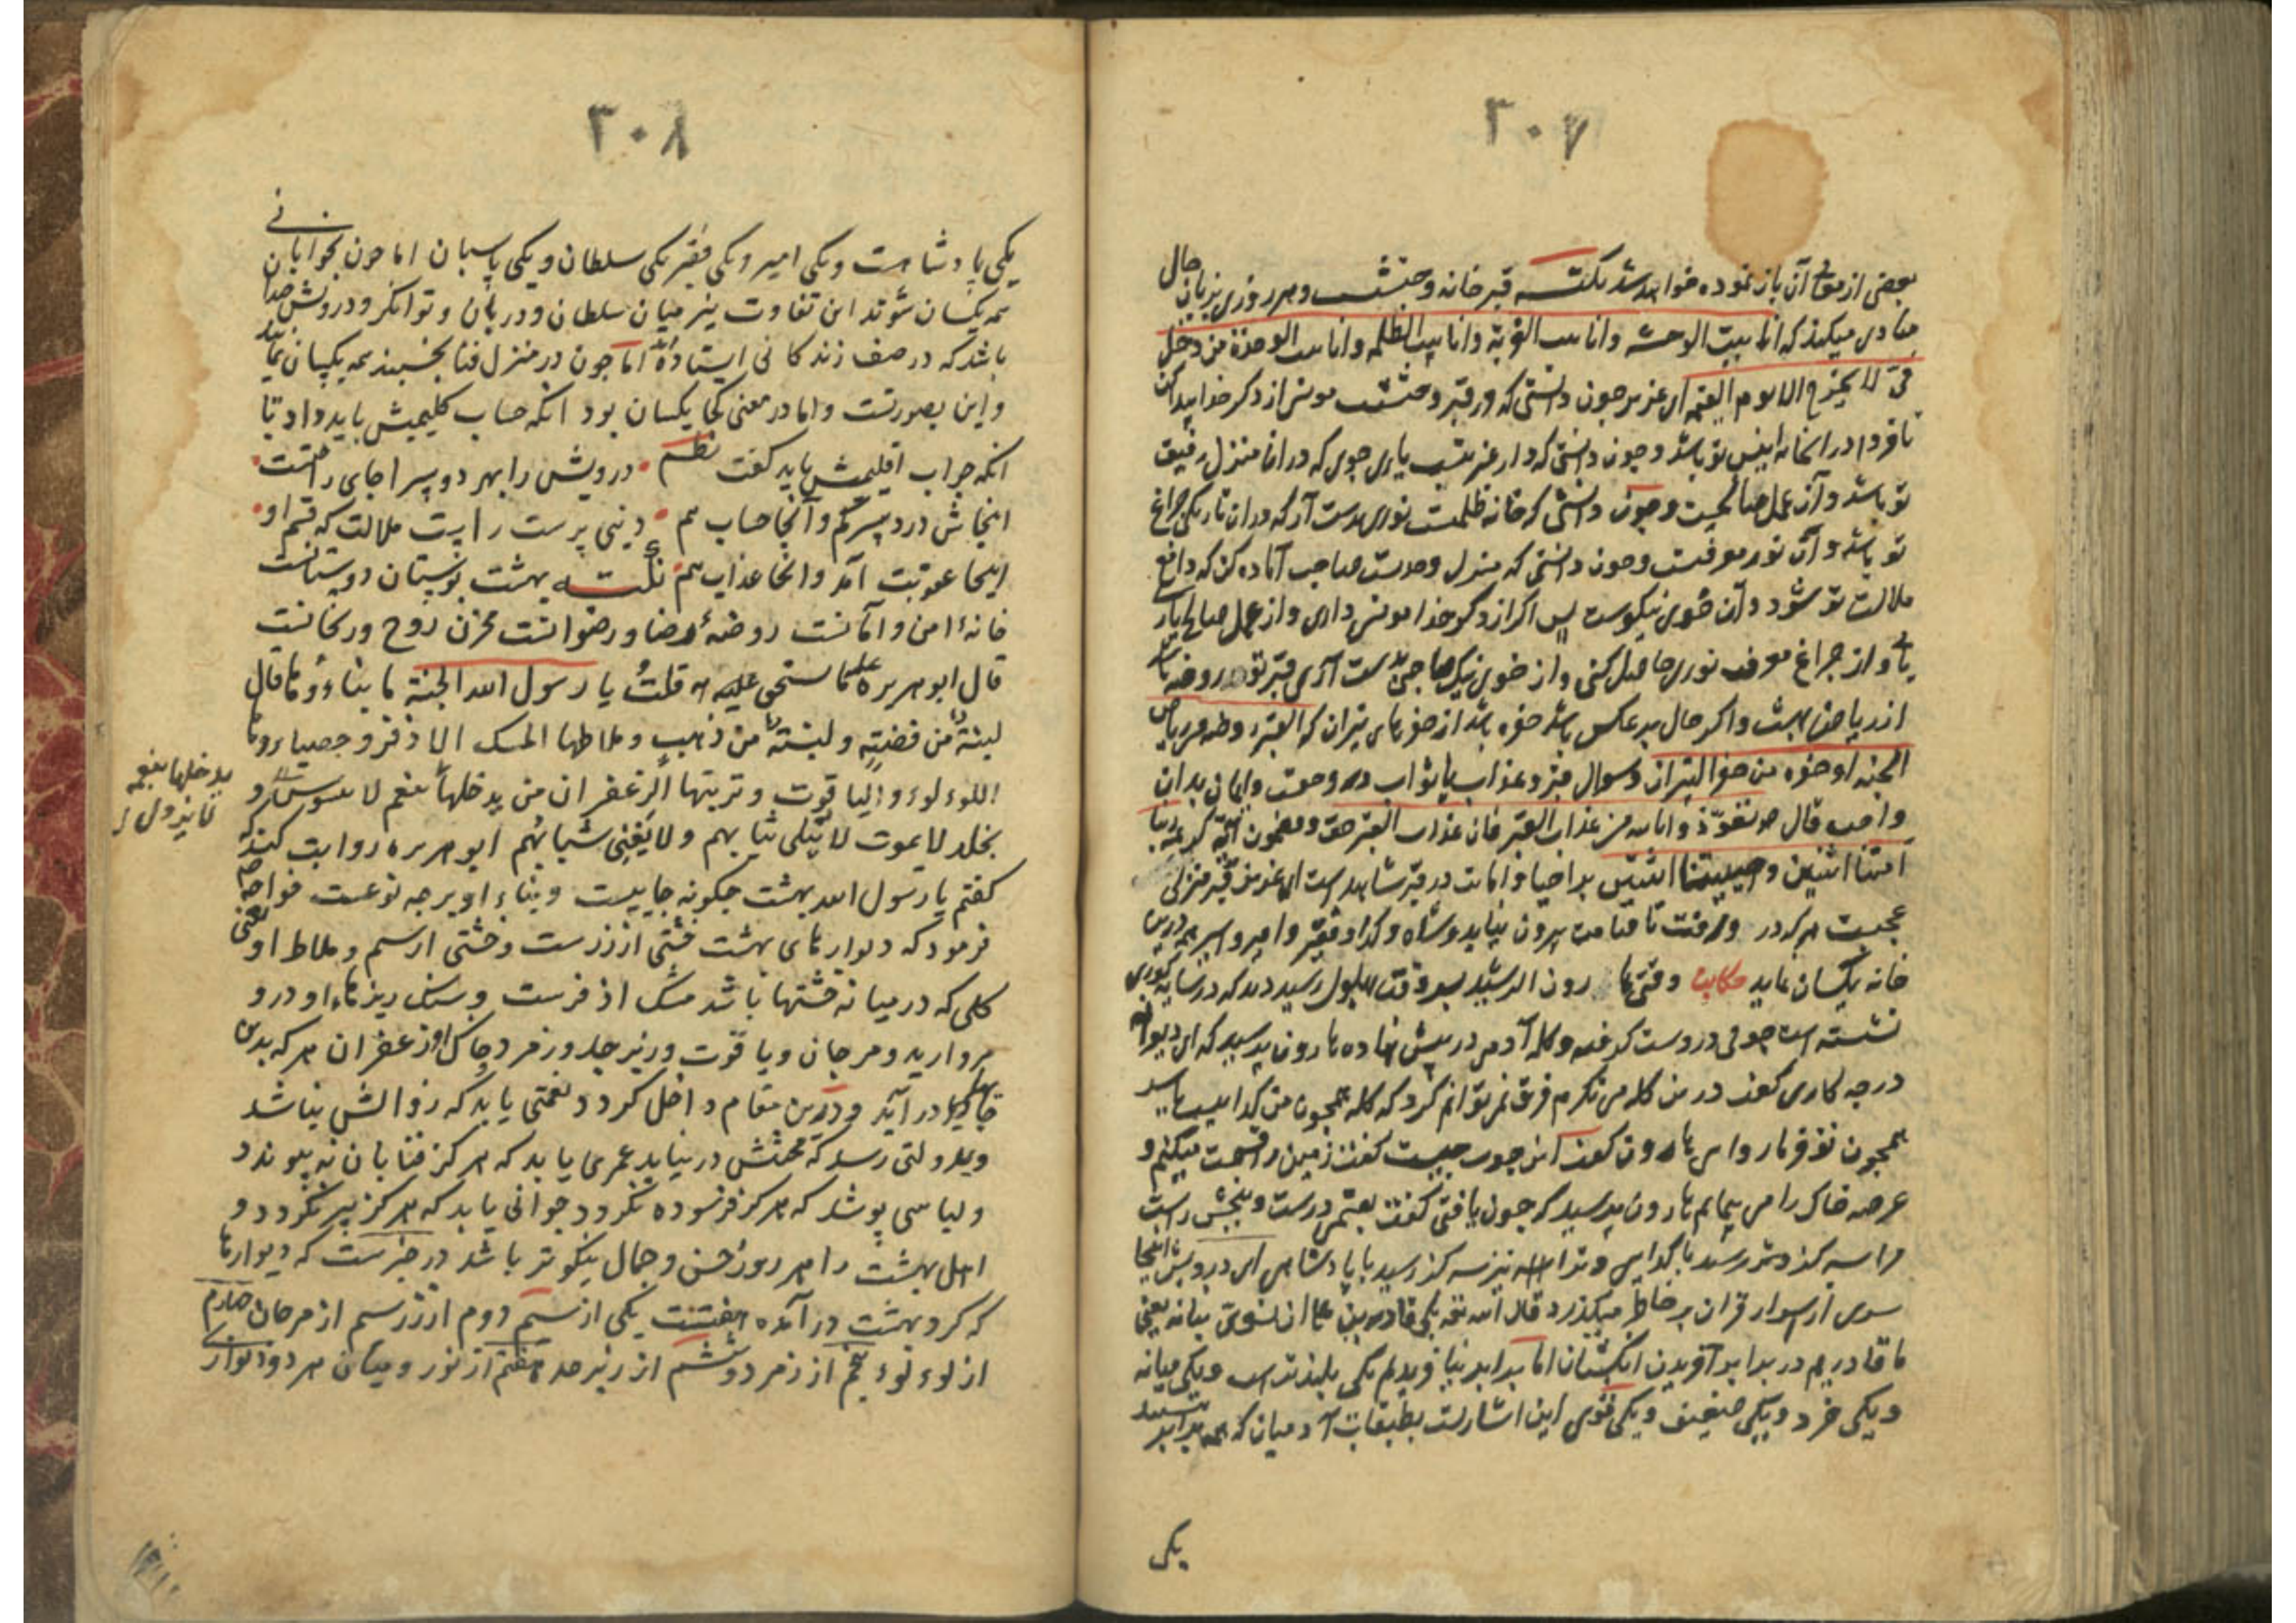 ٣٠٧
بعضی از آن باز نموده خواهد شد نکته قبر خانه وحشتست و هر روزی بزبان حال
منادی میکند که انا بیت الوحشه و انا بیت الغربة و انا بیت الظلمه و انا بیت الوحدة من دخل
فی لا یخرج الا یوم القیمه ای عزیز چون دانستی که در قبر وحشتست مونس از ذکر خدا پیدا کن
تا فردا در انخانه انیس تو باشد و چون دانستی که دار غربتست یاری جوی که در ان منزل رفیق
تو باشد و آن عمل صالحست و چون دانستی که خانه ظلمت نوری بدست آر که در ان تاریکی چراغ
تو باشد و آن نور معرفت و چون دانستی که منزل وحدت مصاحب آماده کن که دافع
ملالت تو شود و آن خوی نیکوست پس اگر از ذکر خدا مونس داری و از عمل صالح یار
یابی و از چراغ معرفت نوری حاصل کنی و از خوی نیک مصاحبی بدست آری قبر تو روضه باشد
از ریاض بهشت و اگر حال بر عکس باشد حفره باشد از حفرهای نیران که القبر روضه من ریاض
الجنه او حفره من حفر النیران و سوال قبر و عذاب یا ثواب در و حقست و ایمان بدان
واجب قال تعوذوا بالله من عذاب القبر فان عذاب القبر حق و مضمون آیه کریمه ربنا
امتنا اثنین و احییتنا اثنتین بر احیا و اماتت در قبر شاهدست ای عزیز قبر منزلی
عجبست هر که در و رفت تا قیامت بیرون نیاید و شاه و گدا و فقیر و امیر و اسیر همه درین
خانه یکسان نماید حکایت وقتی هارون الرشید بر بهلول رسید دید که در سایه گوری
نشسته است چوبی در دست گرفته و کله آدمی در پیش نهاده هارون پرسید که ای دیوانه
در چه کاری گفت درین کله می نگرم فرق نمی توانم کرد که کله همچون من گداییست یا سر
همچون تو فرمان روایی هارون گفت این چوب چیست گفت زمین را قسمت میکنم و
عرصه خاک را می پیمایم هارون پرسید که چون یافتی گفت بقسمی درست و بخش راست
مرا سه گز و تر رسید با گدایی و ترا هم نیز سه گز رسید با پادشاهی ای درویش اینجا
سری از اسرار قران بر خاطر میگذرد قال الله تع بلی قادرین علی ان نسوی بنانه یعنی
ما قادریم در برابر آفریدن انگشتان اما برابر نیافریدیم یکی بلندترست و یکی میانه
و یکی خرد و یکی ضعیف و یکی قوی این اشارتست بطبقات آدمیان که همه برابر نیستند
یکی
٣٠٨
یکی پادشاهست و یکی امیر و یکی فقیر یکی سلطان و یکی پاسبان اما چون بخوابانی
همه یکسان شوند این تفاوت نیز میان سلطان و دربان و توانگر و درویش چندان
باشد که در صف زندگانی ایستاده اند اما چون در منزل فنا بخسبند همه یکسان نماید
و این بصورتست و اما در معنی کجا یکسان بود انکه حساب گلیمیش باید داد تا
انکه جواب اقلیمش باید گفت نظم درویش را بهر دو سرا جای راحتست
اینجاش درد سر کم و آنجا حساب هم دنیی پرست راست ملالت که قسم او
اینجا عقوبت آمد و انجا عذاب هم نکته بهشت بوستان دوستانست
خانهٔ امن و آمانست روضهٔ رضا و رضوانست مخزن روح و ریحانست
قال ابو هریره قلت یا رسول الله الجنة ما بناءوها قال
لبنة من فضة و لبنة من ذهب و ملاطها المسک الاذفر و حصباءوها
اللوءلوء و الیاقوت و تربتها الزعفران من یدخلها ینعم لا
یدخلها ینعم
یخلد لا یموت لا یبلی ثیابهم و لا یفنی شبابهم ابو هریره روایت کند که
گفتم یا رسول الله بهشت چگونه جاییست و بناء او بر چه نوعست خواجه
فرمود که دیوارهای بهشت خشتی از زرست و خشتی از سیم و ملاط او یعنی
گلی که در میانه خشتها باشد مشک اذفرست و سنگ ریزهاء او در و
مروارید و مرجان و یاقوت و زبرجد و زمرد و خاک او زعفران هر که بدین
در آید و درین مقام داخل گردد نعمتی یابد که زوالش نباشد
و بدولتی رسد که محنتش درنیابد عمری یابد که هرگز فنا بان نه پیوندد
و لباسی پوشد که هرگز فرسوده نگردد جوانی یابد که هرگز پیر نگردد و
اهل بهشت را هر روز حسن و جمال نیکوتر باشد در خبرست که دیوارها
که گرد بهشت در آمده هفتست یکی از سیم دوم از زر سیم از مرجان چهارم
از لوءلوء پنجم از زمرد و ششم از زبرجد هفتم از نور و میان هر دو دیواری